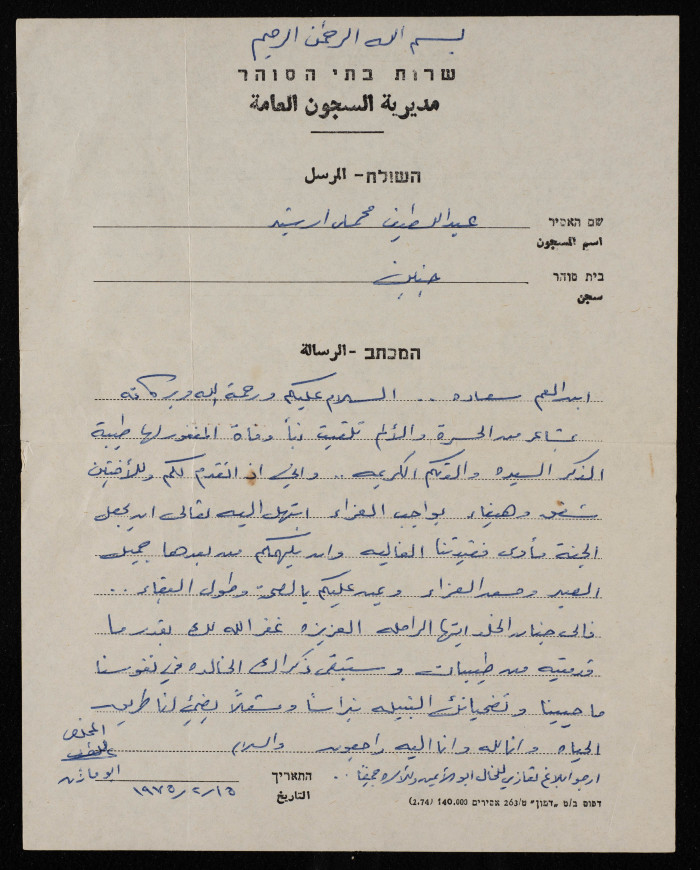 بسم الله الرحمن الرحيم
שרות בתי הסוהר
مديرية السجون العامة
השולח - المرسل
שם האסיר
عبد اللطيف محمد ارشيد
اسم المسجون
בית סוהר
جنين
سجن
המכתב - الرسالة
ابن العم سعاده .. السلام عليكم ورحمة الله وبركاته
بمشاعر من الحسرة والألم تلقيت نبأ وفاة المغفور لها طيبة
الذكر السيده والدتكم الكريمه .. واني اذ اتقدم لكم وللأختين
وهيفاء بواجب العزاء ابتهل اليه تعالى ان يجعل
الجنة مأوى فقيدتنا الغاليه وان يلهمكم من بعدها جميل
الصبر وحسن العزاء ويمن عليكم بالصحة وطول البقاء ..
فالى جنان الخلد ايتها الراحله العزيزه غفر الله لك بقدر ما
قدمتيه من طيبات وستبقى ذكراك الخالده في نفوسنا
ما حيينا وتضحياتك النبيله نبراسًا ومشعلاً يضيئ لنا طريق
الحياه وانا لله وانا اليه راجعون والسلام
المخلص
ارجو ابلاغ تعازي للخال ابو الأمين وللأسره جميعًا ..
ابو مازن
התאריך
التاريخ
١٩٧٥/٢/١٥
דפוס ב/מ "דמון" ט/263 אסירים 140.000 (2.74)